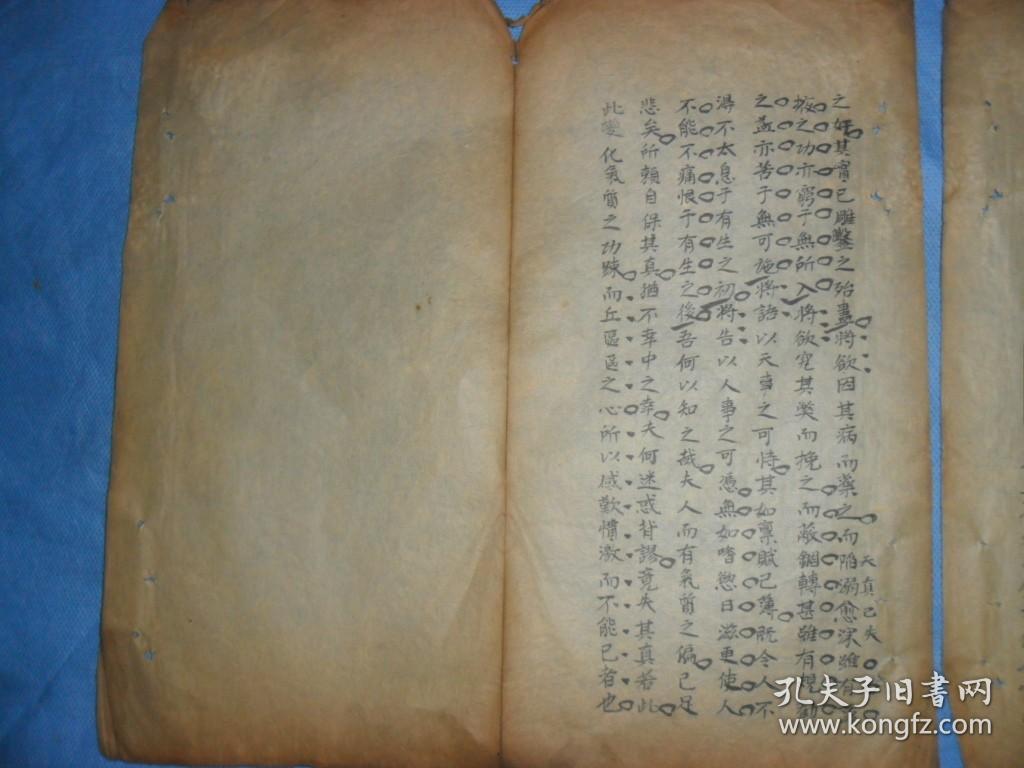 之好其實已雕鑿之殆盡將欲因其病而藥之而陷溺愈深雖有
天真已失
之功亦窮于無所入將欲究其弊而挽之而蔽錮轉甚雖有
之益亦苦于無可施將語以天事之可恃其如稟賦已薄既令人不
得不太息于有生之初將告以人事之可憑無如嗜慾日滋更使人
不能不痛恨于有生之後吾何以知之哉夫人而有氣質之偏已足
悲矣所賴自保其真猶不幸中之幸夫何迷惑背謬竟失其真若此
此變化氣質之功踈而丘區區之心所以感歎憤激而不能已者也
孔夫子旧書网
www.kongfz.com